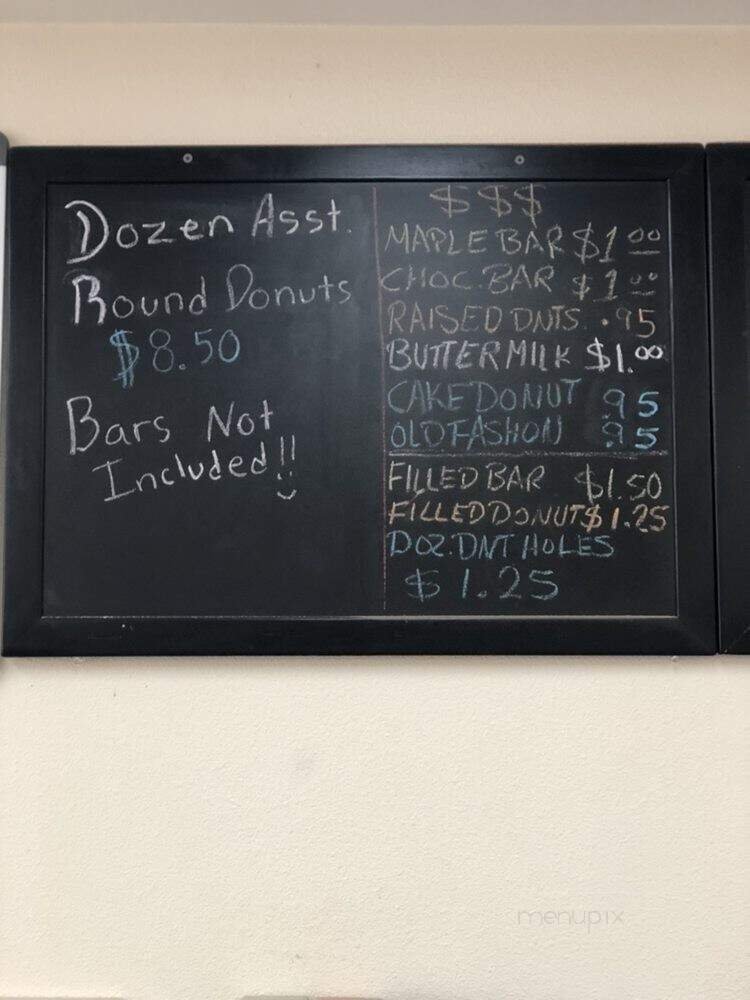 Dozen Asst.
Round Donuts
$8.50
Bars Not
Included!!
$$$
MAPLE BAR $1.00
CHOC. BAR $1.00
RAISED DNTS. .95
BUTTERMILK $1.00
CAKE DONUT .95
OLD FASHION .95
FILLED BAR $1.50
FILLED DONUT $1.25
DOZ. DNT HOLES
$1.25
menupix